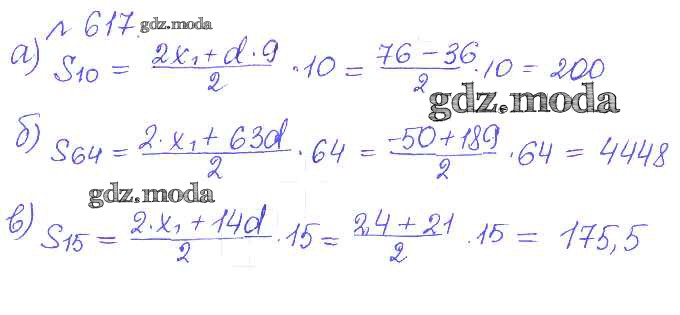 № 617. gdz.moda
а) S10 = (2x₁ + d · 9)/2 · 10 = (76 − 36)/2 · 10 = 200
gdz.moda
б) S64 = (2 · x₁ + 63d)/2 · 64 = (-50 + 189)/2 · 64 = 4448
gdz.moda
в) S15 = (2 · x₁ + 14d)/2 · 15 = (2,4 + 21)/2 · 15 = 175,5